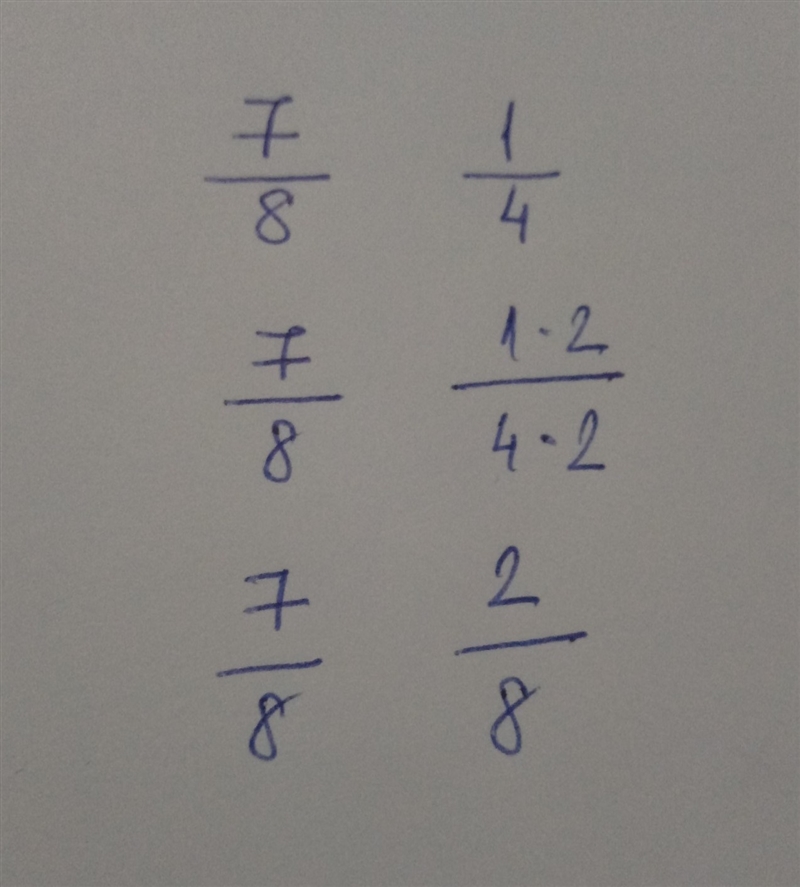 7/8 1/4
7/8 1·2/4·2
7/8 2/8